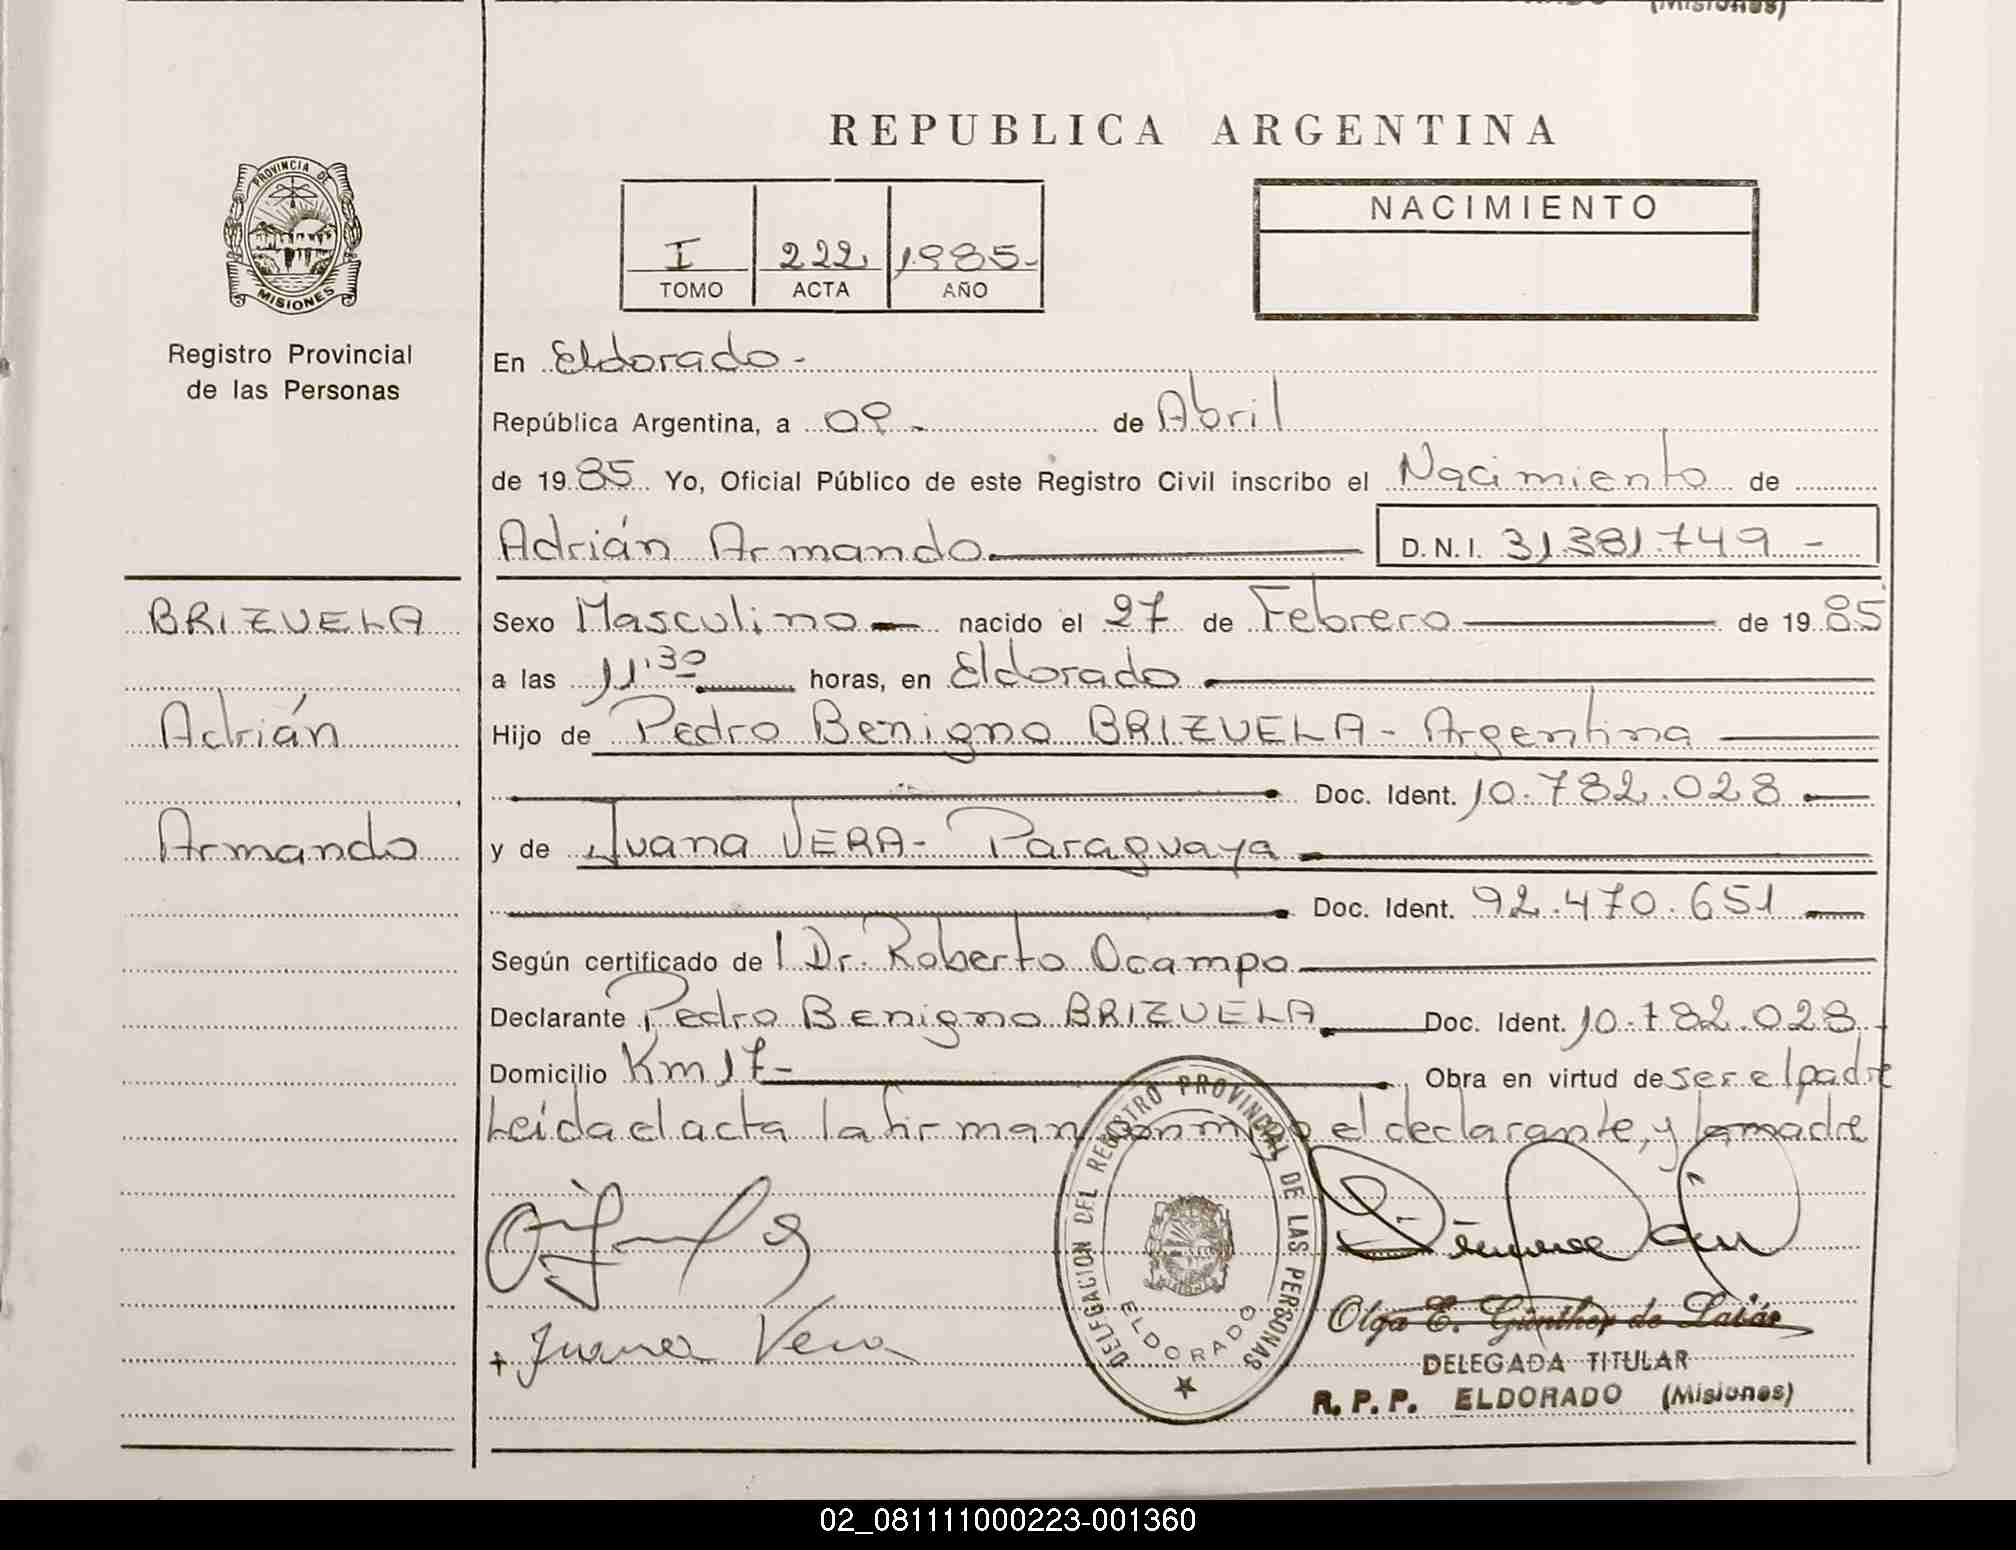 (Misiones)
REPUBLICA ARGENTINA
PROVINCIA DE
MISIONES
Registro Provincial
de las Personas
I 222, 1985-
TOMO ACTA AÑO
NACIMIENTO
En Eldorado-
República Argentina, a 09- de Abril
de 1985 Yo, Oficial Público de este Registro Civil inscribo el Nacimiento de
Adrián Armando D.N.I. 31.381.749-
BRIZUELA
Adrián
Armando
Sexo Masculino nacido el 27 de Febrero de 1985
a las 11,30 horas, en Eldorado
Hijo de Pedro Benigno BRIZUELA- Argentina
Doc. Ident. 10.782.028
y de Juana VERA- Paraguaya
Doc. Ident. 92.470.651
Según certificado del Dr. Roberto Ocampo
Declarante Pedro Benigno BRIZUELA Doc. Ident. 10.782.028
Domicilio Km 17- Obra en virtud de ser el padre
Leida el acta la firman conmigo el declarante, y la madre
DELEGACION DEL REGISTRO PROVINCIAL DE LAS PERSONAS
ELDORADO
+ Juana Vera
Olga E. Günther de
DELEGADA TITULAR
R. P. P. ELDORADO (Misiones)
02_081111000223-001360